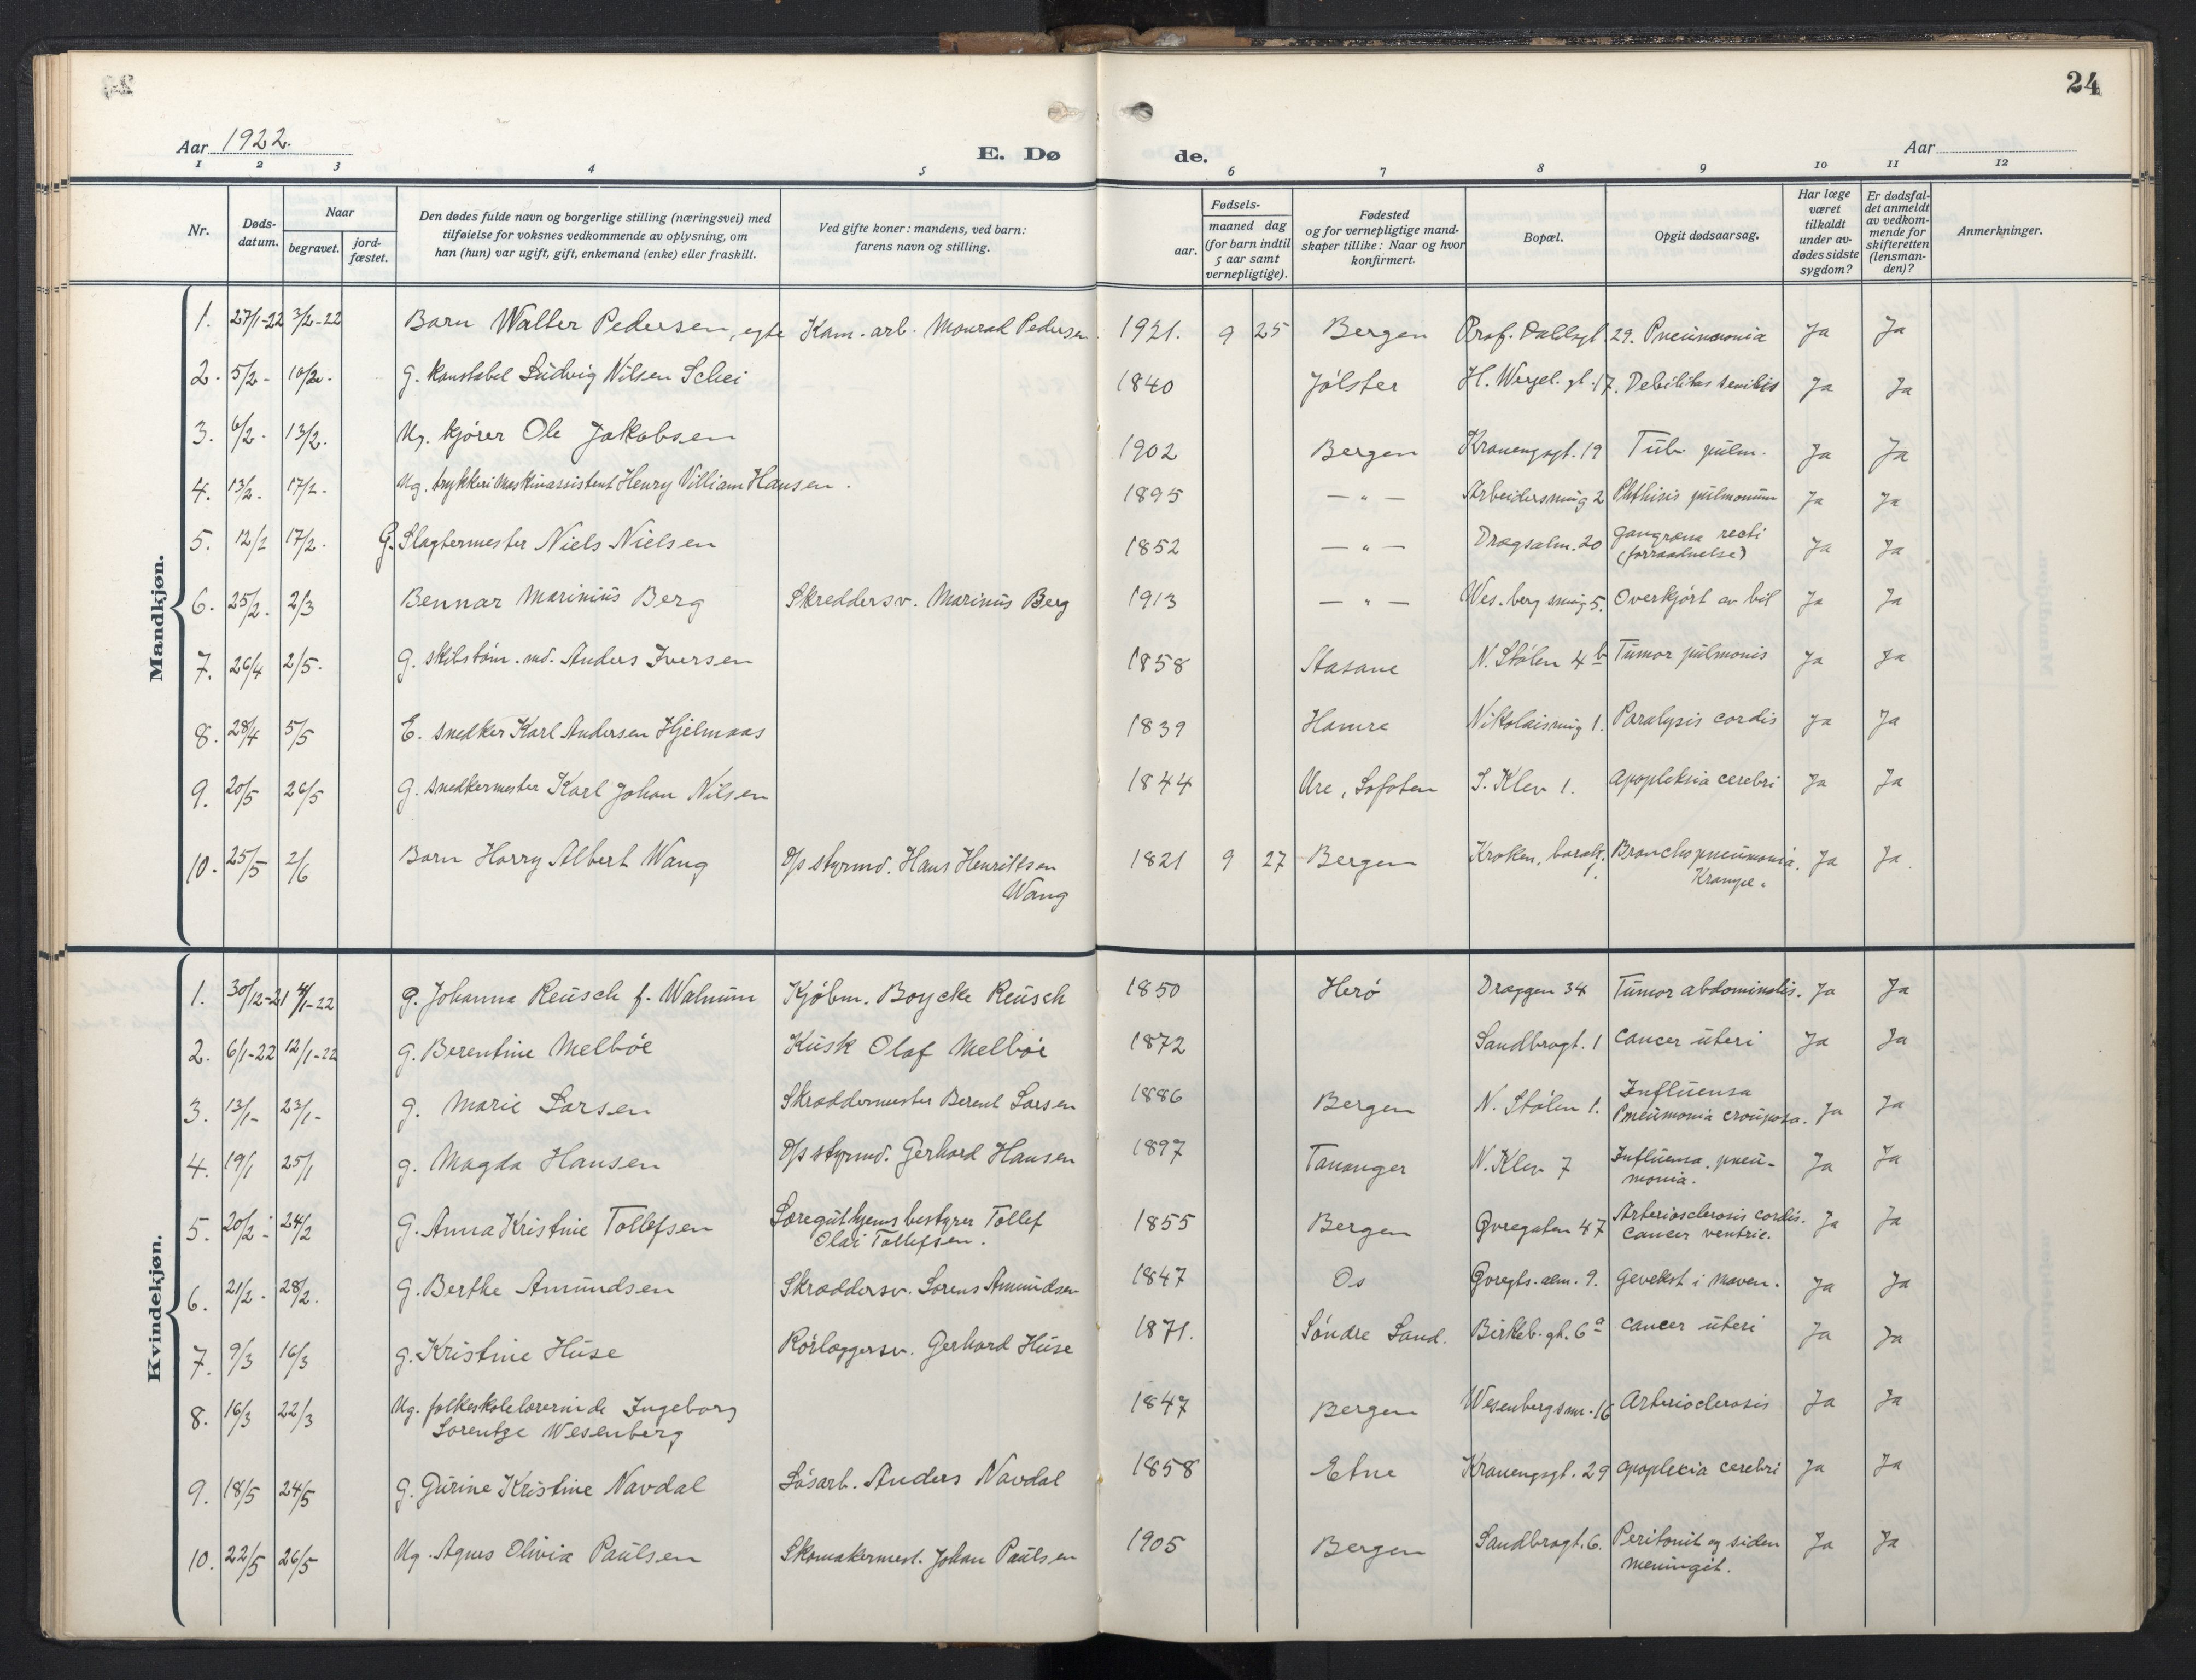 24
Aar 1922.
E. Dø de.
Aar
1 2 3 4 5 6 7 8 9 10 11 12
Nr.
Døds-datum.
Naar
begravet.
jord-fæstet.
Den dødes fulde navn og borgerlige stilling (næringsvei) med
tilføielse for voksnes vedkommende av oplysning, om
han (hun) var ugift, gift, enkemand (enke) eller fraskilt.
Ved gifte koner: mandens, ved barn:
farens navn og stilling.
Fødsels-
aar.
maaned dag
(for barn indtil
5 aar samt
vernepligtige).
Fødested
og for vernepligtige mand-
skaper tillike: Naar og hvor
konfirmert.
Bopæl.
Opgit dødsaarsag.
Har læge
været
tilkaldt
under av-
dødes sidste
sygdom?
Er dødsfal-
det anmeldt
av vedkom-
mende for
skifteretten
(lensman-
den)?
Anmerkninger.
Mandkjøn.
1. 27/1-22 3/2-22 Barn Walter Pedersen, egte Kom. arb. Monrad Pedersen. 1921. 9 25 Bergen Prof. Dahlsgt. 29. Pneumonia Ja Ja
2. 5/2- 10/2. G. konstabel Ludvig Nilsen Schei 1840 Jølster H. Wergel. gt. 17. Debilitas senilis Ja Ja
3. 6/2. 13/2. Ug. kjører Ole Jakobsen 1902 Bergen Kranengsgt. 19 Tub. pulm. Ja Ja
4. 13/2. 17/2. Ug. trykkeri Maskinassistent Henry Villiam Hansen. 1895 — " — Arbeidersmug 2 Phthisis pulmonum Ja Ja
5. 12/2 17/2. G. Slagtermester Niels Nielsen 1852 — " — Dragsalm. 20 Gangræna recti
(forraadnelse) Ja Ja
6. 25/2. 2/3 Bennar Marinius Berg Skreddersv. Marinus Berg 1913 — " — Wes.berg smug 5. Overkjørt av bil Ja Ja
7. 26/4 2/5. G. skibstøm.md. Anders Iversen 1858 Stasane N. Stølen 4 b Tumor pulmonis Ja Ja
8. 28/4 5/5 E. snedker Karl Andersen Hjelmaas 1839 Hamre Nikolaismug 1. Paralysis cordis Ja Ja
9. 20/5 26/5 G. snedkermester Karl Johan Nilsen 1844 Ure, Lofoten S. Klev 1. Apopleksia cerebri Ja Ja
10. 25/5 2/6 Barn Harry Albert Wang D/s styrmd. Hans Henriksen
Wang 1821 9 27 Bergen Kroken, barak. Bronchopneumonia.
Krampe. Ja Ja.
Kvindekjøn.
1. 30/12-21 4/1-22 g. Johanna Reusch f. Walnum Kjøbm. Boycke Reusch 1850 Herø Dræggen 34 Tumor abdominalis. Ja Ja
2. 6/1-22 12/1-22 g. Berentine Melbøe Kusk Olaf Melbøe 1872 Sandbrogt. 1 Cancer uteri Ja Ja
3. 13/1- 23/1- g. Marie Larsen Skræddermester Berent Larsen 1886 Bergen N. Stølen 1. Influensa
Pneumonia crouposa. Ja Ja
4. 19/1 25/1 g. Magda Hansen D/s styrmd. Gerhard Hansen 1897 Tananger N. Klev 7 Influensa. pneu-
monia. Ja Ja
5. 20/2 24/2 G. Anna Kristine Tollefsen Læreguthjems bestyrer Tollef
Olai Tollefsen. 1855 Bergen Øvregaten 47 Arteriosclerosis cordis.
Cancer ventric. Ja Ja
6. 21/2. 28/2. G. Berthe Amundsen Skræddersv. Lorens Amundsen 1847 Os Øvregts. alm. 9. Gevekst i maven. Ja Ja
7. 9/3 16/3 g. Kristine Huse Rørlæggersv. Gerhard Huse 1871. Søndre Land. Birkeb. gt. 6 a Cancer uteri Ja Ja
8. 16/3 22/3 Ug. folkeskolelærerinde Ingeborg
Lorentze Wesenberg 1847 Bergen Wesenbergsmr. 16 Arterioclerosis Ja Ja
9. 18/5 24/5 G. Gurine Kristine Navdal Løsarb. Anders Navdal 1858 Etne Kranengsgt. 29 Apoplexia cerebri Ja Ja
10. 22/5 26/5 Ug. Agnes Olivia Paulsen Skomakermest. Johan Paulsen 1905 Bergen Sandbrogt. 6. Peritonit og siden
meningit. Ja Ja